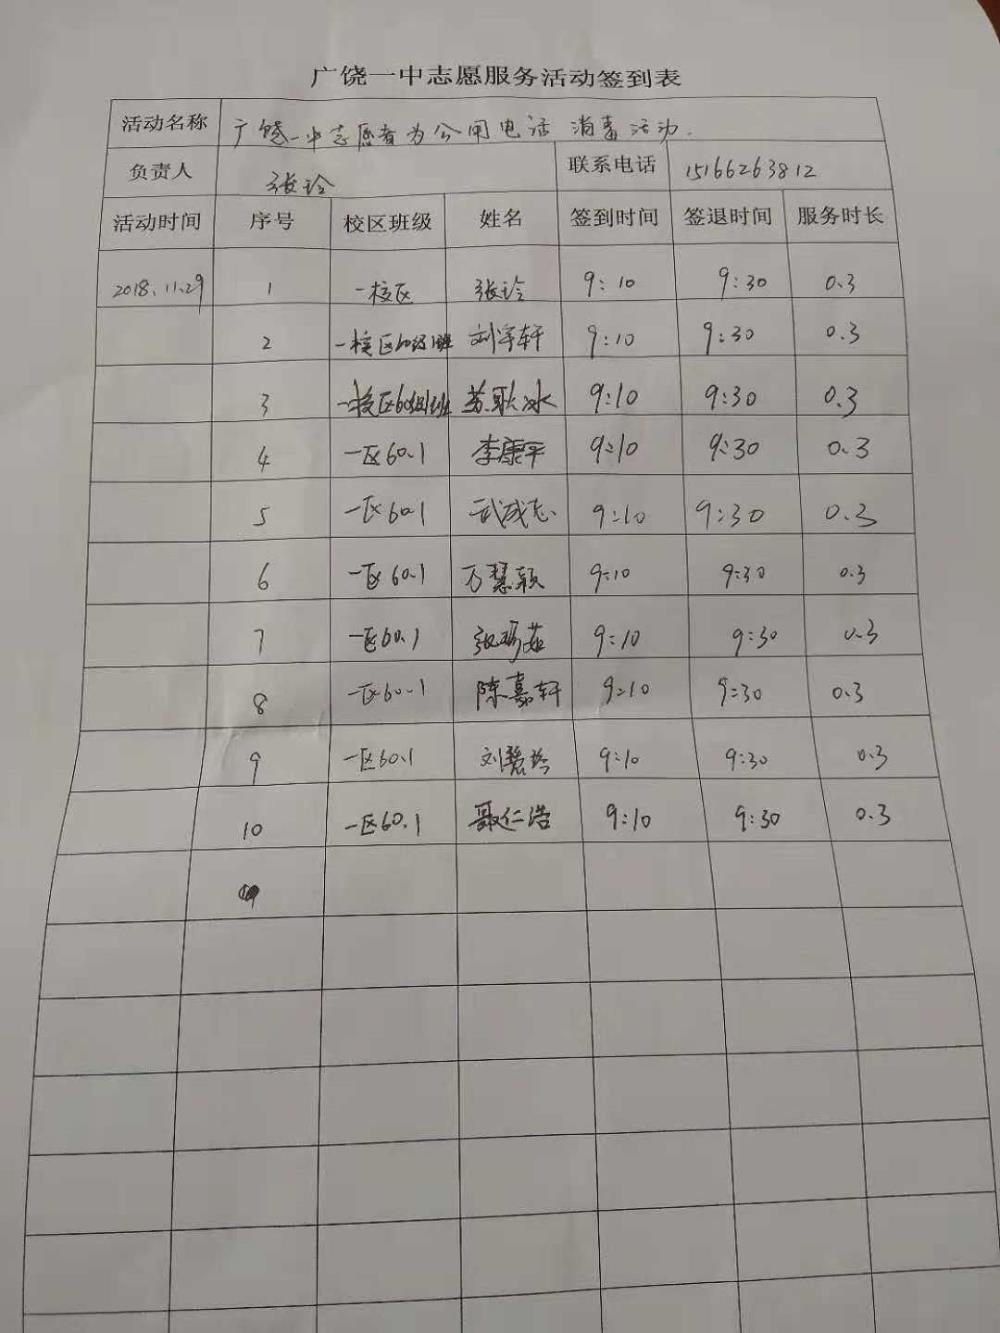 广饶一中志愿服务活动签到表
活动名称 广饶一中志愿者为公用电话 消毒活动.
负责人 张玲 联系电话 15166263812
活动时间 序号 校区班级 姓名 签到时间 签退时间 服务时长
2018.11.29 1 一校区 张玲 9:10 9:30 0.3
2 一校区60级1班 刘宇轩 9:10 9:30 0.3
3 一校区60级1班 苏耿冰 9:10 9:30 0.3
4 一区60.1 李康平 9:10 9:30 0.3
5 一区60.1 武成志 9:10 9:30 0.3
6 一区60.1 万慧颖 9:10 9:30 0.3
7 一区60.1 9:10 9:30 0.3
8 一区60.1 陈嘉轩 9:10 9:30 0.3
9 一区60.1 9:10 9:30 0.3
10 一区60.1 聂仁浩 9:10 9:30 0.3